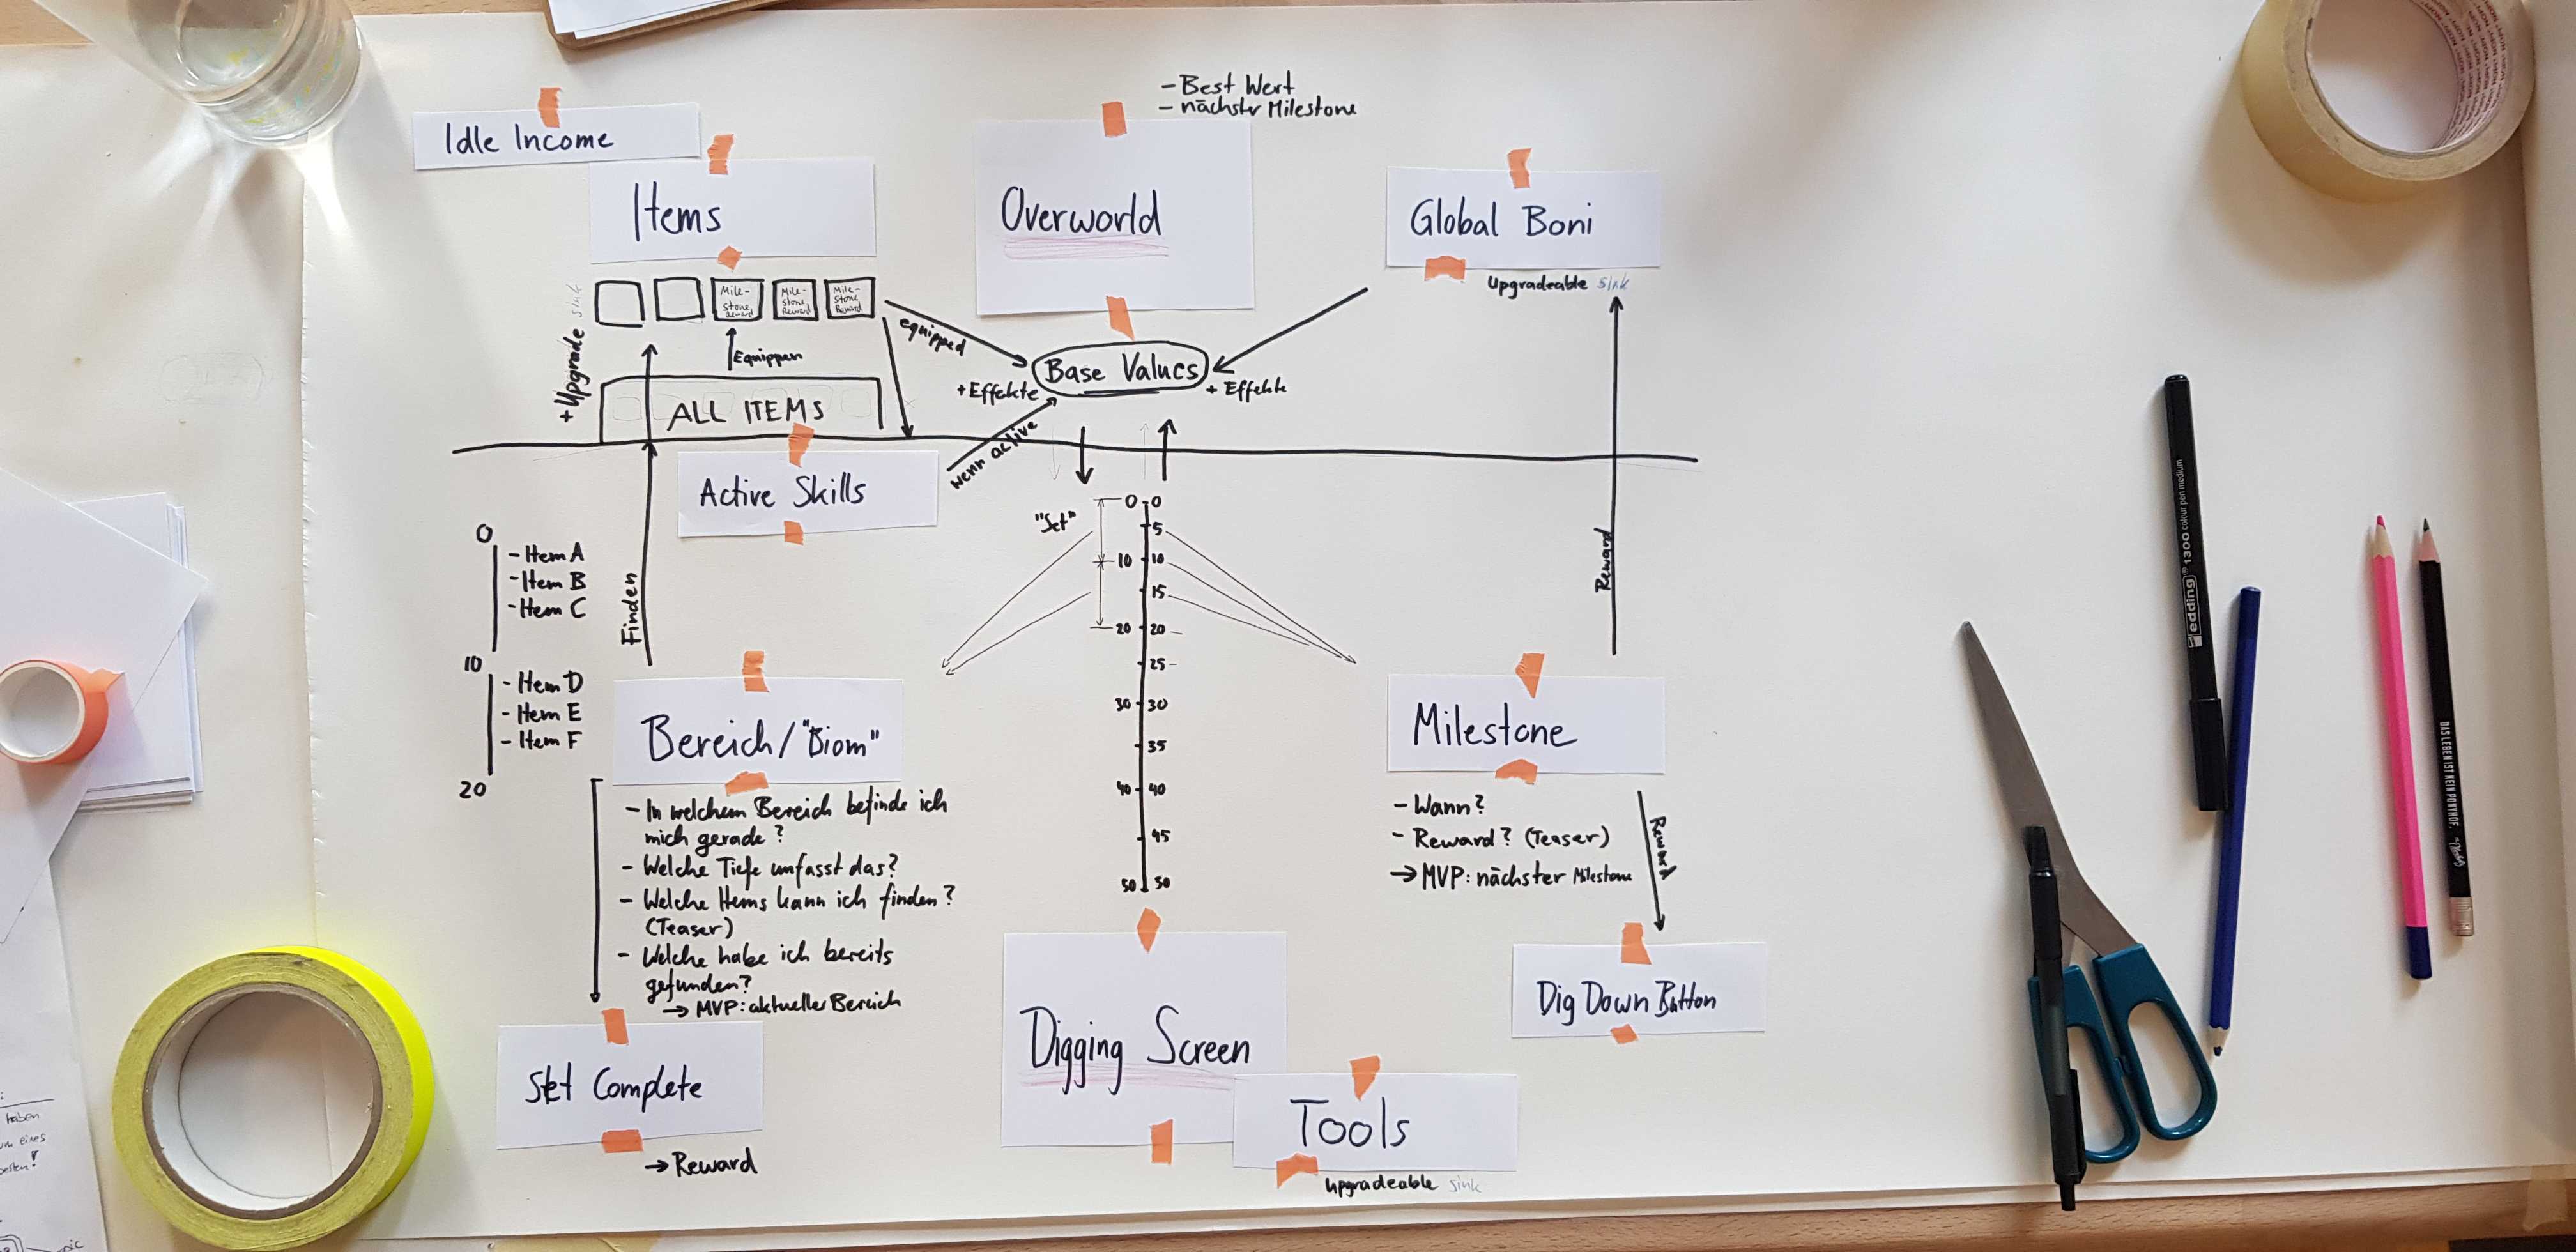 - Best Wert
- nächster Milestone
Idle Income
Items
Overworld
Global Boni
Upgradeable sink
+ Upgrade sink
Mile-
stone
Reward
Mile-
stone
Reward
Mile-
stone
Reward
Equippen
ALL ITEMS
equipped
+ Effekte
Base Values
+ Effekte
wenn active
Active Skills
Finden
Reward
0
- Item A
- Item B
- Item C
10
- Item D
- Item E
- Item F
20
"Set"
0 0
5
10 10
15
20 20
25
30 30
35
40 40
45
50 50
Bereich/"Biom"
- In welchem Bereich befinde ich
mich gerade?
- Welche Tiefe umfasst das?
- Welche Items kann ich finden?
(Teaser)
- Welche habe ich bereits
gefunden?
→ MVP: aktueller Bereich
Set Complete
→ Reward
Milestone
- Wann?
- Reward? (Teaser)
→ MVP: nächster Milestone
Reward
Dig Down Button
Digging Screen
Tools
Upgradeable sink
edding 1300 colour pen medium
DAS LEBEN IST KEIN PONYHOF.
haben
eines